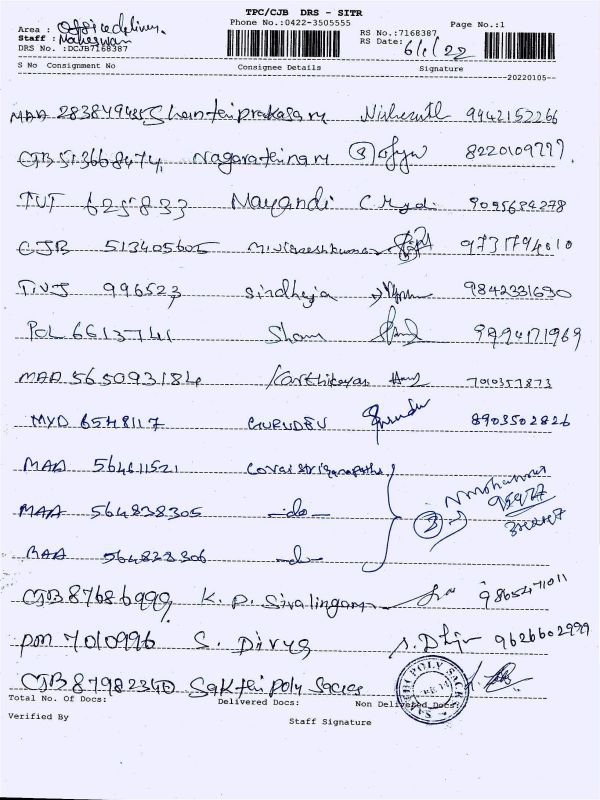 TPC/CJB DRS - SITR
Phone No.:0422-3505555
Page No.:1
Area : Office delivery
Staff : Maheswari
RS No.:7168387
DRS No. :DCJB7168387
RS Date: 6/1/22
S No Consignment No Consignee Details Signature
20220105
MAA Shanthi prakasam 9942152266
CJB 513668474 Nagarathinam 3
TUT 625833 Mayandi 9095684278
CJB 513405605 M. Vigneshkumar
TUJ 996523 Sindhuja 9842331690
POL 6613741 Sham 9994171969
MAA 565093184 Karthikeyan 7010357873
MYD 6548117 GURUDEV 8903502826
MAA 564611521
MAA 564838305 -do- 3
MAA 564838306 -do-
CJB 87686999 K. P. Sivalingam 9865471011
PM 7010996 S. Divya 9626602999
CJB 87982340 Sakthi Poly Sacks
SAKTHI POLY SACK
Total No. Of Docs: Delivered Docs: Non Delivered Docs:
Verified By
Staff Signature